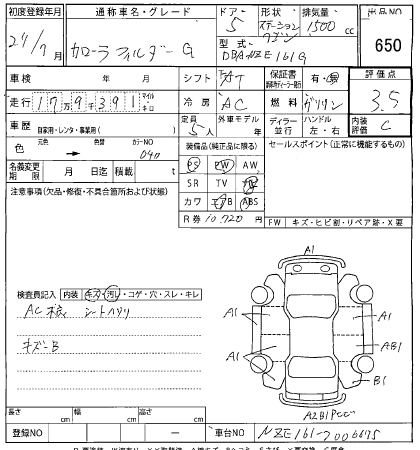 初度登録年月 通称車名・グレード ドア 形状 排気量 出品NO
24/7月 カローラフィルダー G 5 ステーションワゴン 1500cc 650
型式 DBA-NZE161G
車検 年 月 シフト AT 保証書 有・無 評価点 3.5
走行 17万9千391 マイル・キロ 冷房 AC 燃料 ガソリン
車歴 自家用・レンタ・事業用( ) 定員 5人 外車モデル 年 ディーラー 並行 ハンドル 左・右 内装評価 C
色 元色 → 色替 カラーNO 040 装備品(純正品に限る) セールスポイント(正常に機能するもの)
名義変更期限 月 日迄 積載 t PS PW AW
注意事項(欠品・修復・不具合箇所および状態) SR TV
カワ エアB ABS
R券 10,720円 FW キズ・ヒビ割・リペア跡・X要
検査員記入 内装 キズ・汚レ・コゲ・穴・スレ・キレ
シートハリ
キズ-B
A1
A1 A1
A1 AB1
B1
A2B1
長さ cm 幅 cm 高さ cm
登録NO ― 車台NO NZE161-7006675